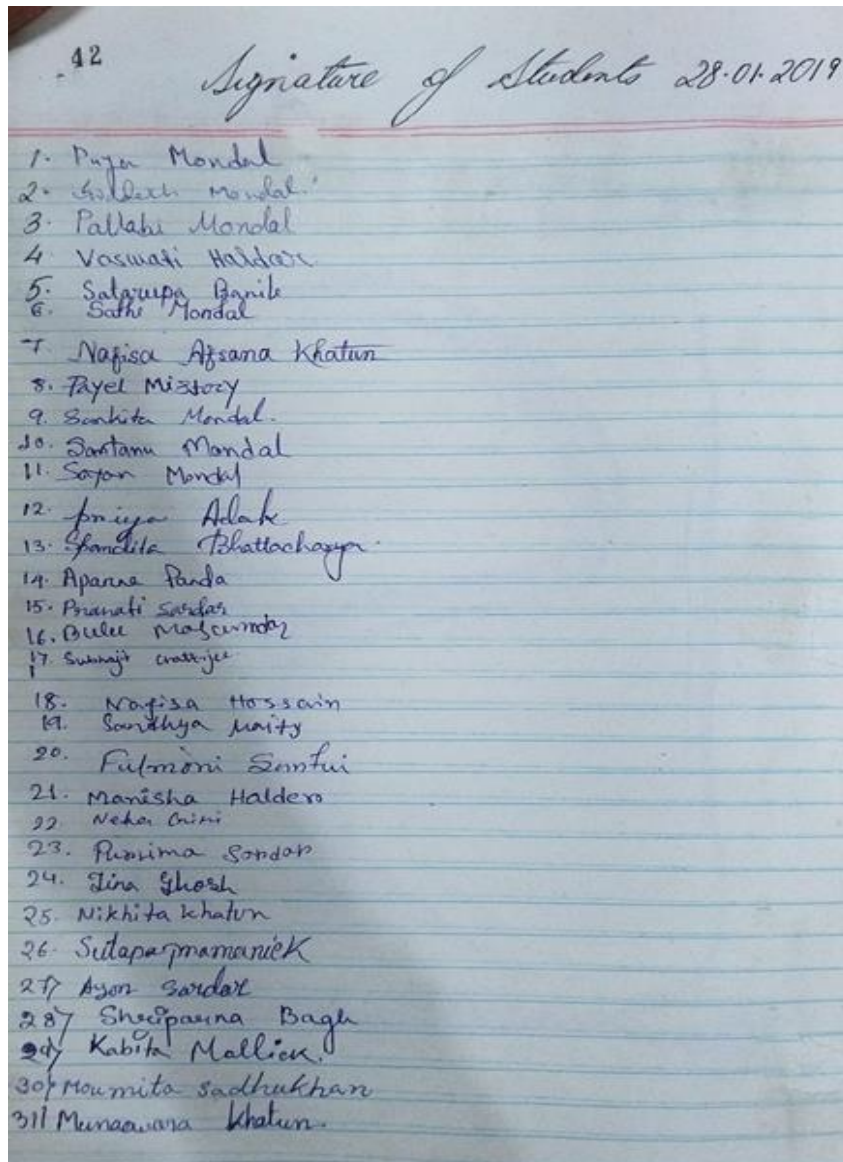 42
Signature of Students 28.01.2019
1. Puja Mondal
2. Mondal
3. Pallabi Mondal
4 Vaswati Haldar
5. Satarupa Banik
6. Sathi Mondal
7. Nafisa Afsana Khatun
8. Payel Mistory
9. Sankita Mondal.
10. Santanu Mondal
11. Sayan Mondal
12. Priya Adak
13. Spandita Bhattacharya.
14. Aparna Panda
15. Pranati Sardar
16. Bulu Majumdar
17. Subhajit
18. Nafisa Hossain
19. Sandhya Maity
20. Fulmoni Santui
21. Manisha Haldero
22 Neha Giri
23. Purnima Sardar
24. Tina Ghosh
25. Nikhita Khatun
26. Sutapa pramaniek
27) Ayon Sardar
28) Shreeparna Bagh
29) Kabita Mallick.
30) Moumita Sadhukhan
31) Munaawara Khatun.